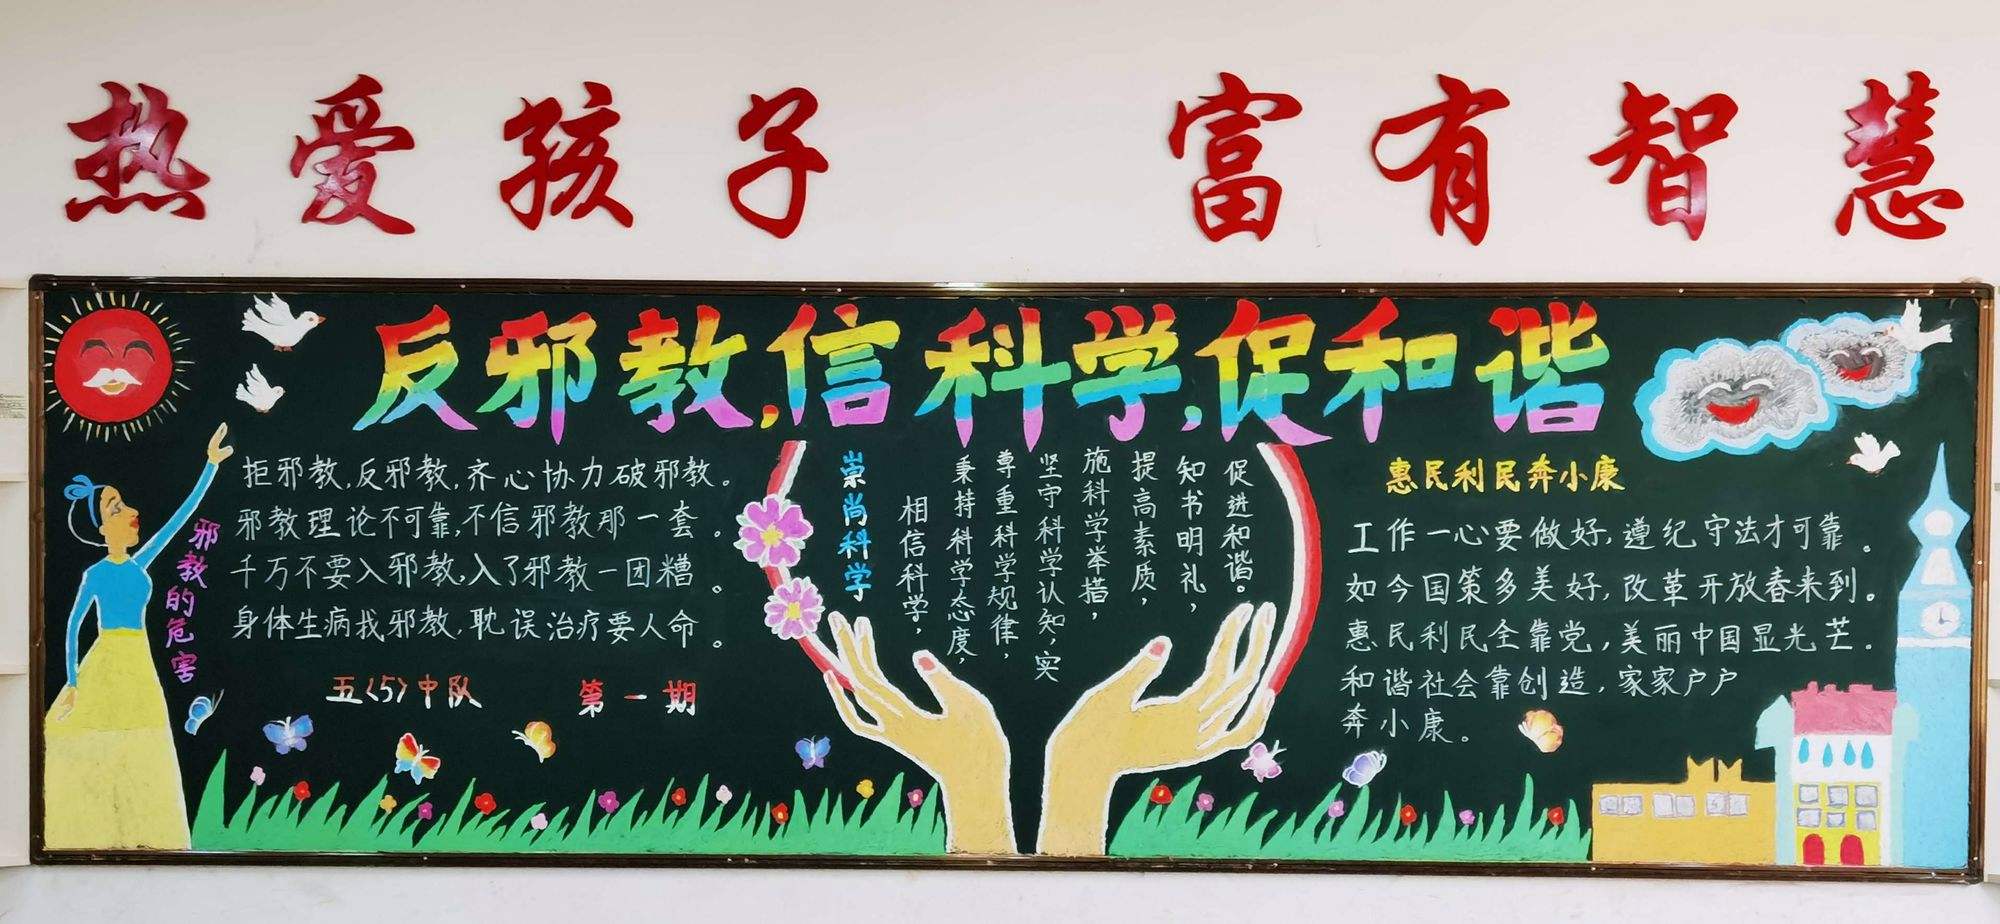 热爱孩子 富有智慧
反邪教,信科学,促和谐
邪教的危害
拒邪教,反邪教,齐心协力破邪教。
邪教理论不可靠,不信邪教那一套。
千万不要入邪教,入了邪教一团糟。
身体生病找邪教,耽误治疗要人命。
五〈5〉中队 第一期
崇尚科学
相信科学,
秉持科学态度,
尊重科学规律,
坚守科学认知,实
施科学举措,
提高素质,
知书明礼,
促进和谐。
惠民利民奔小康
工作一心要做好,遵纪守法才可靠。
如今国策多美好,改革开放春来到。
惠民利民全靠党,美丽中国显光芒。
和谐社会靠创造,家家户户
奔小康。